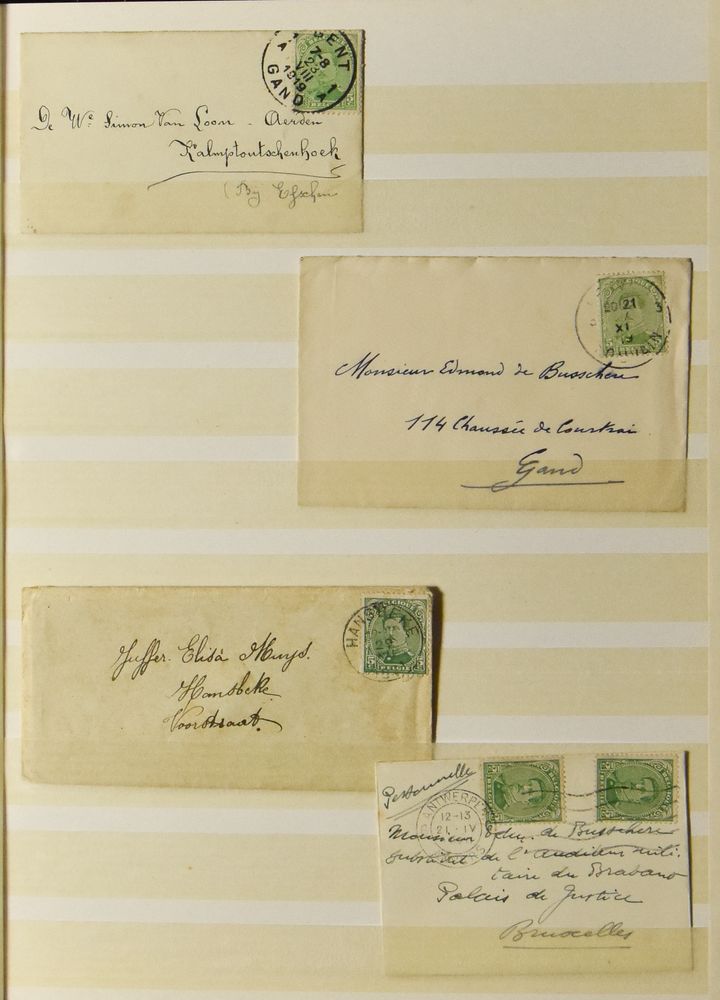 GENT 1
7-8
23
VIII
1919
A A
GAND
De We Simon Van Loon - Aerden
Kalmptoutschenhoek
(Bij Esschen
20 21
XI
19
Monsieur Edmond de Busschere
114 Chaussée de Courtrai
Gand
HANSBEKE
BELGIQUE
5 5
BELGIË
Juffer. Elisà Muys.
Hansbeke
Voorstraat.
Personnelle
ANTWERPEN
12-13
21 IV
Monsieur Edm. de Busschere
Substitut de l'auditeur mili-
taire du Brabant
Palais de Justice
Bruxelles